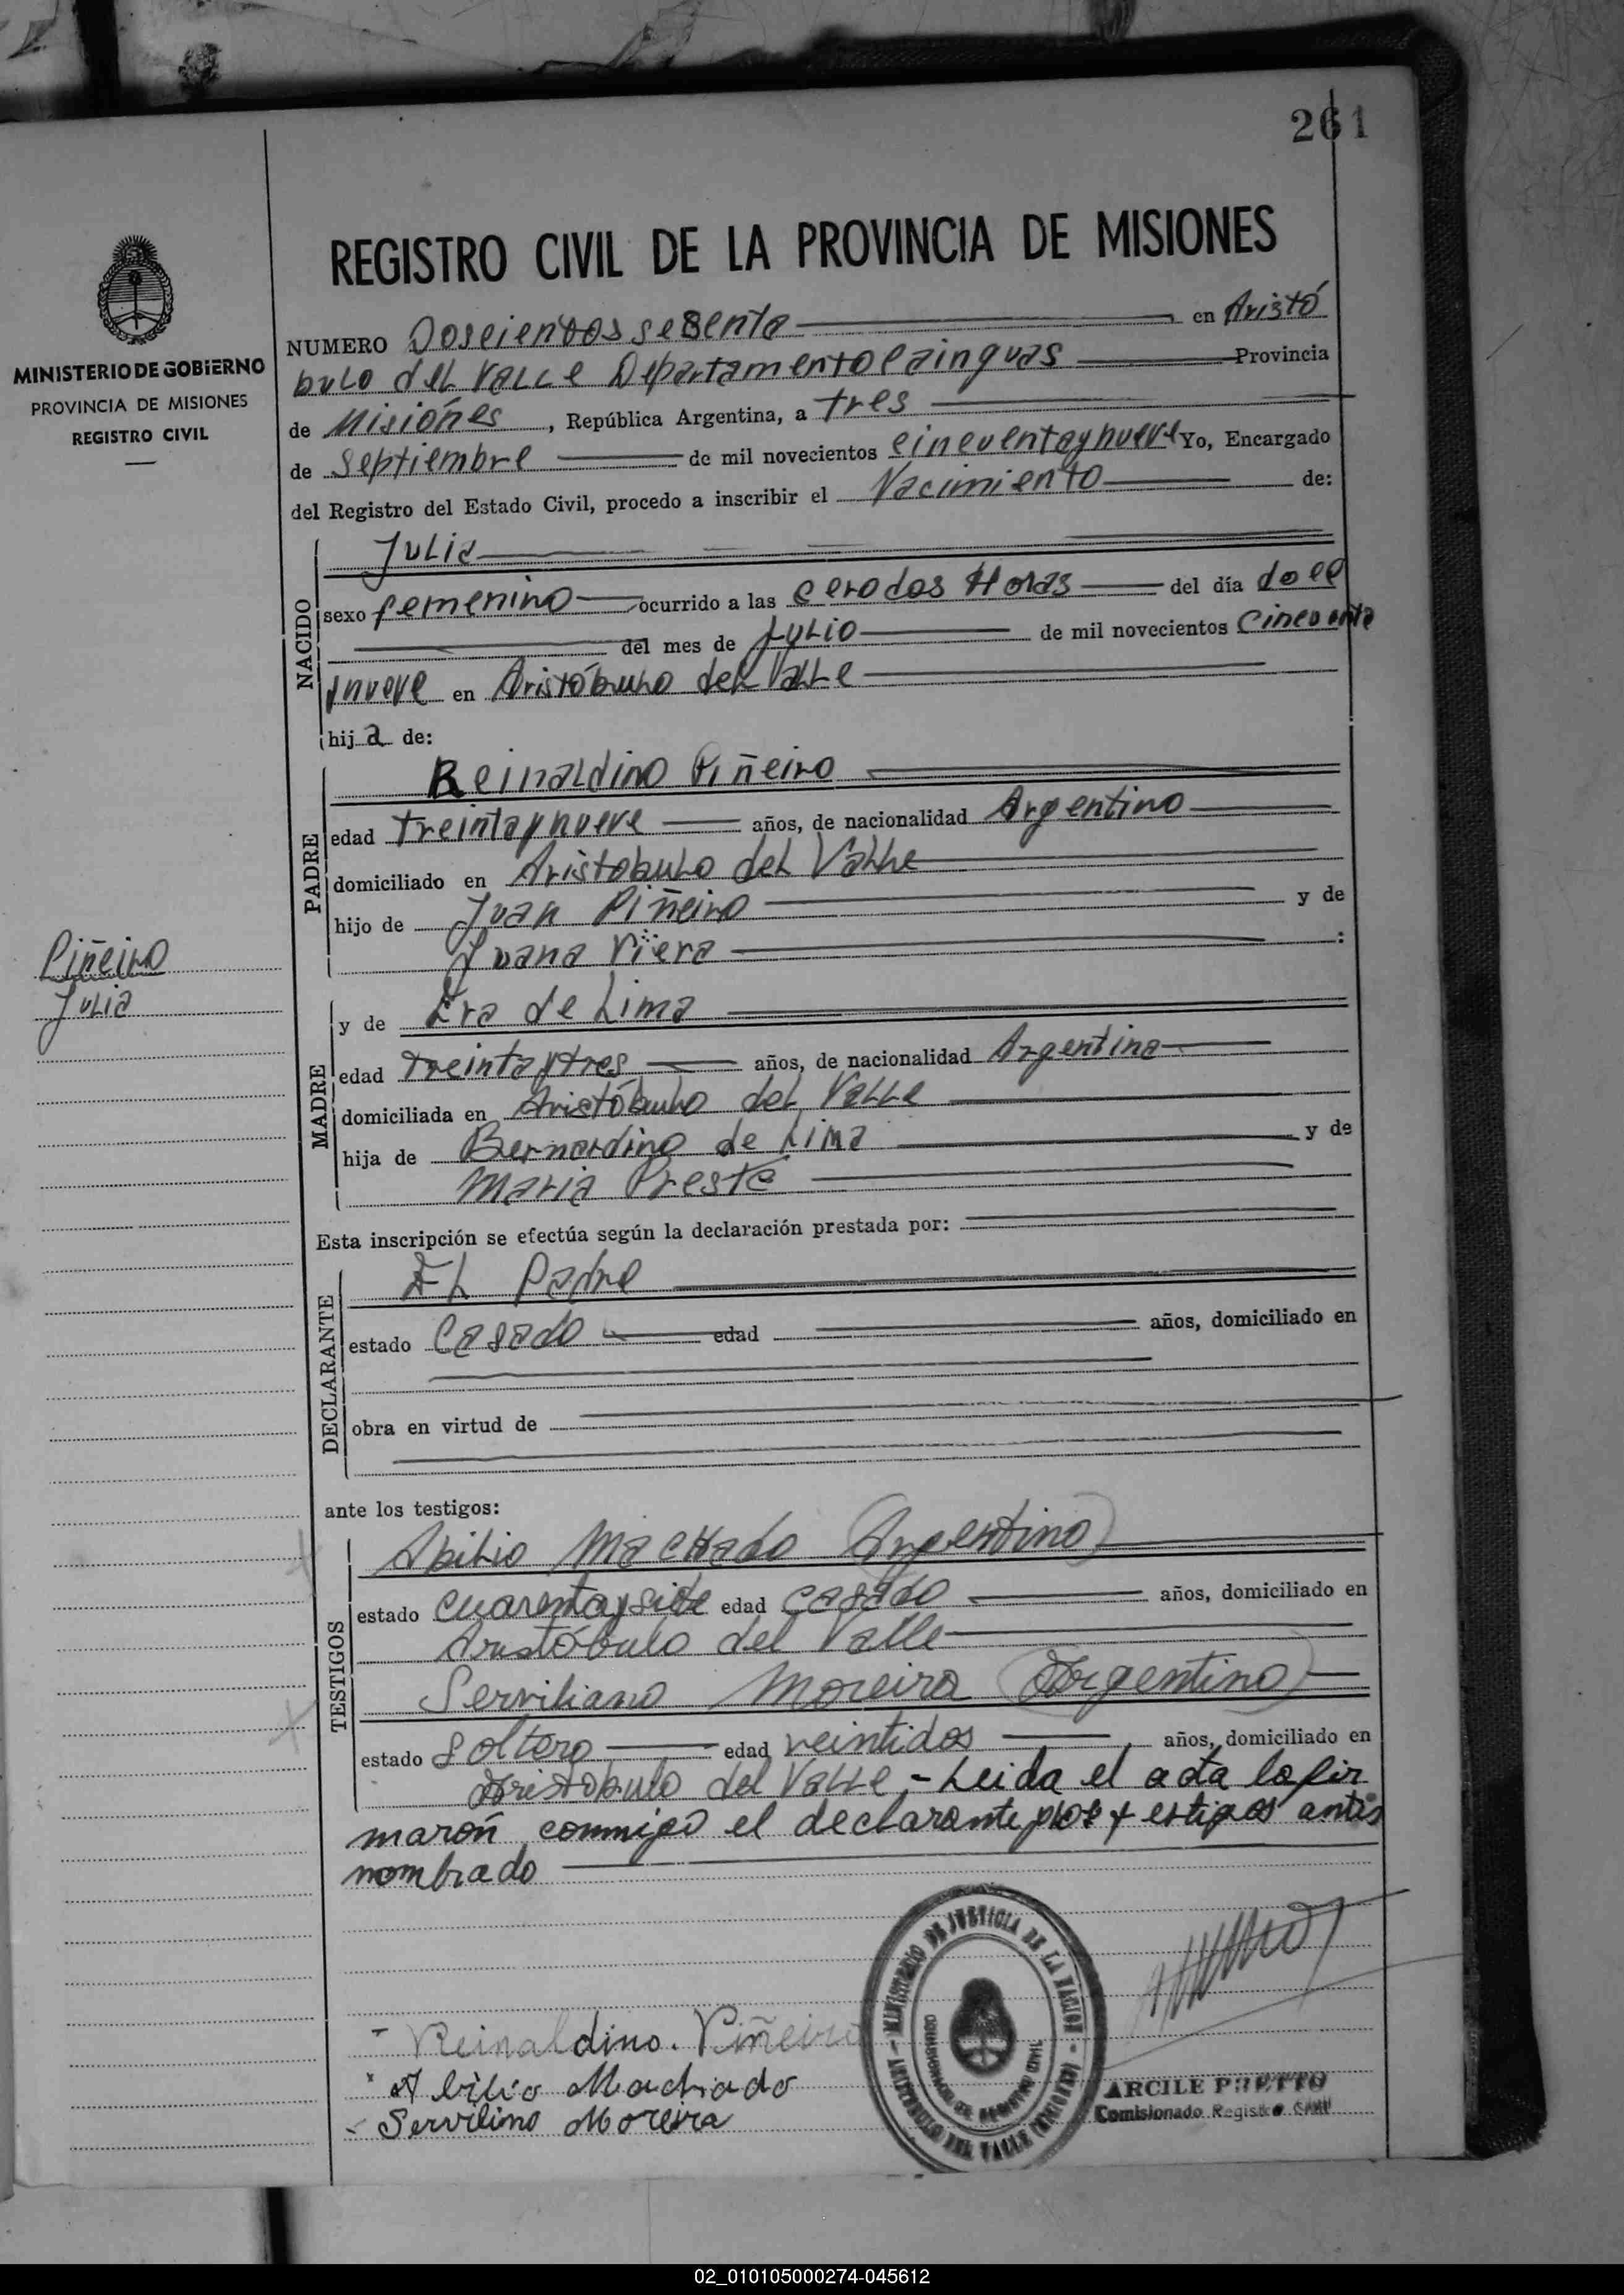 261
REGISTRO CIVIL DE LA PROVINCIA DE MISIONES
MINISTERIO DE GOBIERNO
PROVINCIA DE MISIONES
REGISTRO CIVIL
NUMERO Doscientos sesenta en Aristó
bulo del Valle Departamento Cainguas Provincia
de Misiones, República Argentina, a tres
de Septiembre de mil novecientos cincuentaynueve Yo, Encargado
del Registro del Estado Civil, procedo a inscribir el Nacimiento de:
NACIDO
Julia
sexo femenino ocurrido a las cero dos Horas del día doce
del mes de Julio de mil novecientos Cincuenta
ynueve en Aristóbulo del Valle
hija de:
PADRE
Reinaldino Piñeiro
edad treintaynueve años, de nacionalidad Argentino
domiciliado en Aristobulo del Valle
hijo de Juan Piñeiro y de
Juana Viera :
Piñeiro
Julia
MADRE
y de Eva de Lima
edad treintaytres años, de nacionalidad Argentina
domiciliada en Aristóbulo del Valle
hija de Bernardino de Lima y de
Maria Preste
Esta inscripción se efectúa según la declaración prestada por:
DECLARANTE
El Padre
estado Casado edad años, domiciliado en
obra en virtud de
ante los testigos:
TESTIGOS
Abilio Machado (Argentino)
estado cuarentaysiete edad casado años, domiciliado en
Aristóbulo del Valle
Serviliano Moreira (Argentino)
estado soltero edad veintidos años, domiciliado en
Aristobulo del Valle.- Leida el acta la fir
maron conmigo el declarante y los testigos antes
nombrado
Reinaldino. Piñeiro
Abilio Machado
Servilino Moreira
MINISTERIO DE JUSTICIA DE LA NACION
ARISTOBULO DEL VALLE (MISIONES)
ARCILE PRETTO
Comisionado Registro Civil
02_010105000274-045612